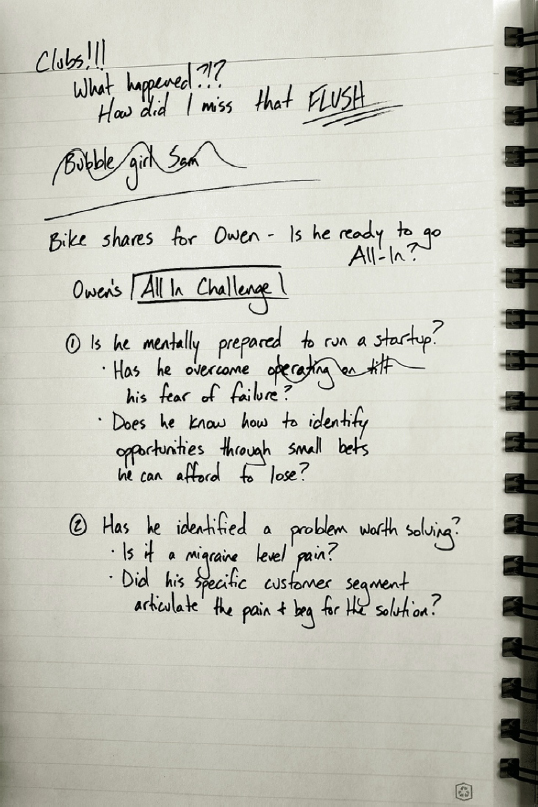 Clubs!!!
What happened?!?
How did I miss that FLUSH
Bubble girl Sam
Bike shares for Owen - Is he ready to go
All-In?
Owen's All In Challenge
① Is he mentally prepared to run a startup?
· Has he overcome operating on tilt
his fear of failure?
· Does he know how to identify
opportunities through small bets
he can afford to lose?
② Has he identified a problem worth solving?
· Is it a migraine level pain?
· Did his specific customer segment
articulate the pain + beg for the solution?